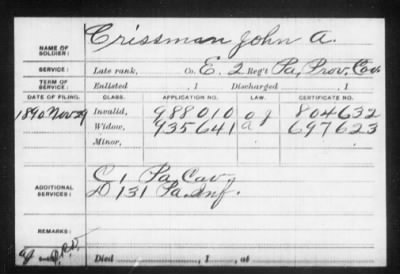 Crissman John A.
NAME OF SOLDIER:
SERVICE: Late rank, Co. E. 2 Reg't Pa. Prov. Cav.
TERM OF SERVICE: Enlisted , 1 Discharged , 1
DATE OF FILING. CLASS. APPLICATION NO. LAW. CERTIFICATE NO.
1890 Nov 29 Invalid, 988010 804632
Widow, 935641 a 697623
Minor,
C 1 Pa Cav.
ADDITIONAL SERVICES: D 131 Pa. Inf.
REMARKS:
Died , 1 , at